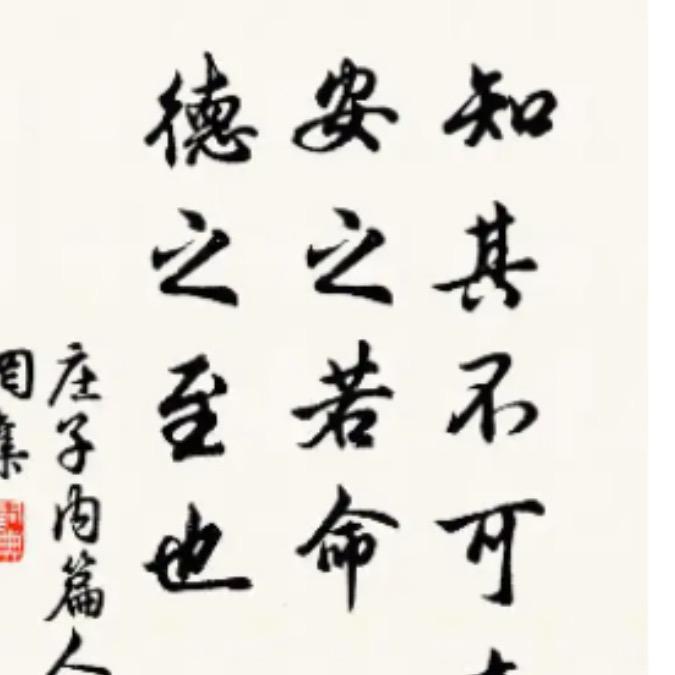 知其不可
安之若命
德之至也
庄子内篇人
周集